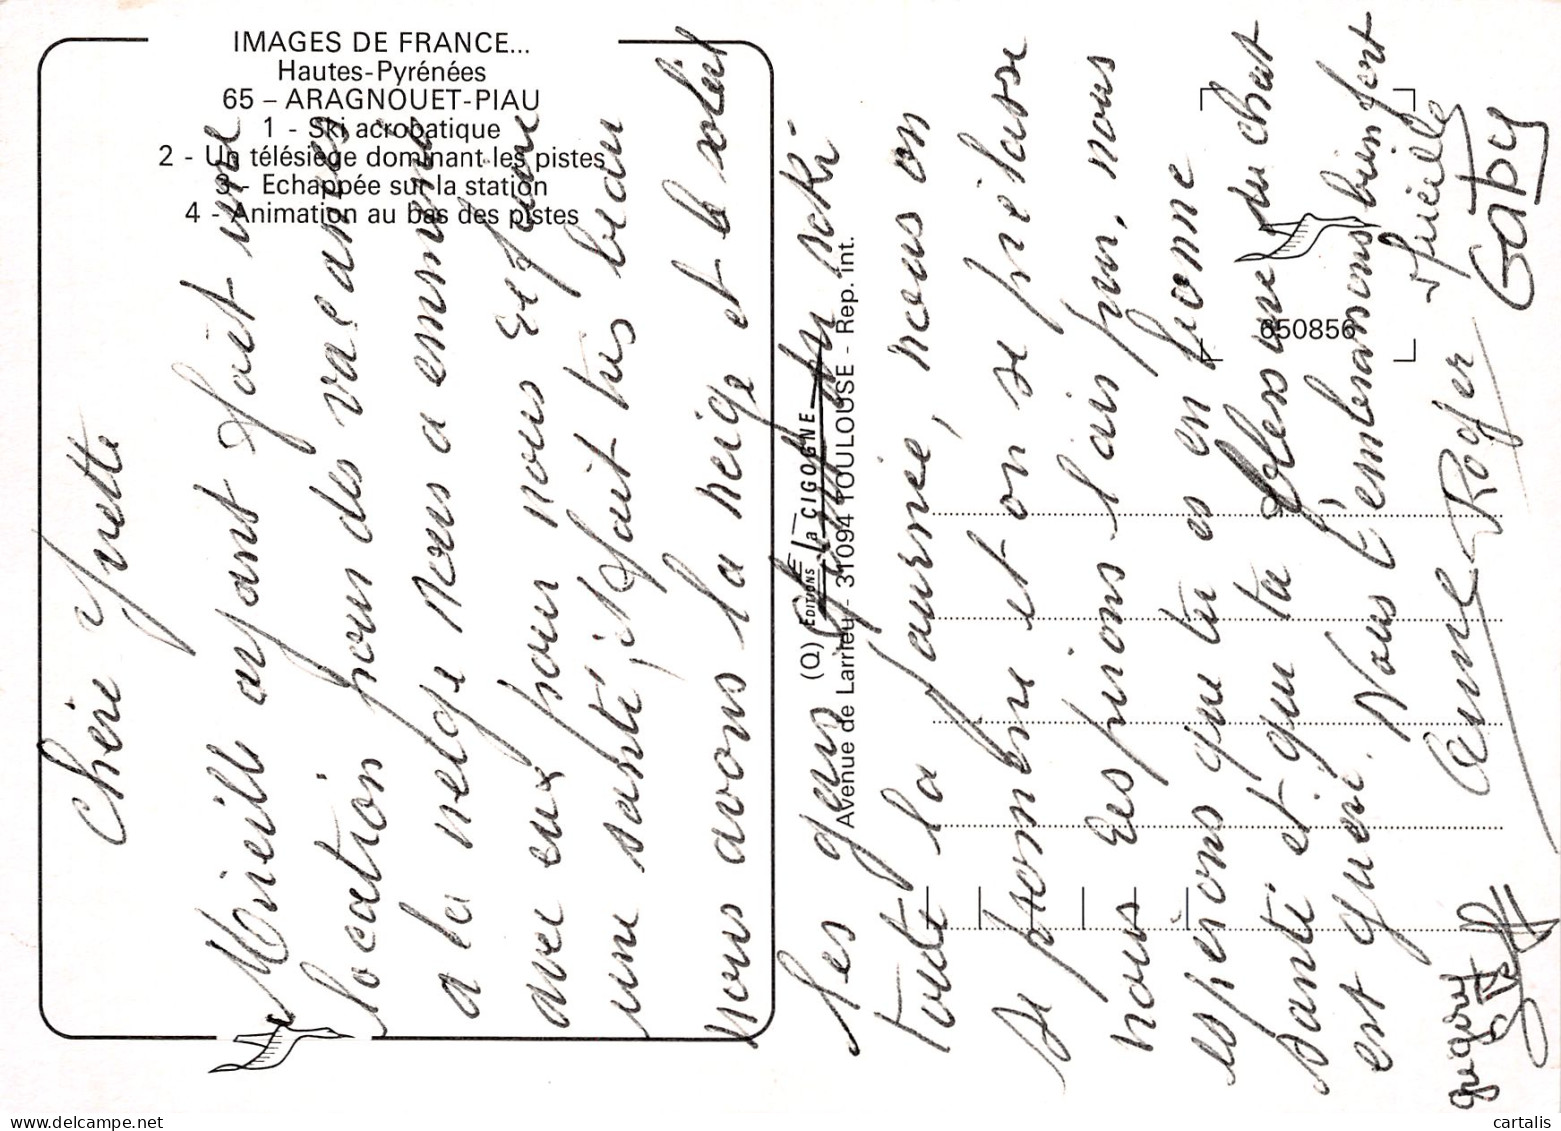 IMAGES DE FRANCE...
Hautes-Pyrénées
65 – ARAGNOUET-PIAU
1 - Ski acrobatique
2 - Un télésiège dominant les pistes
3 - Echappée sur la station
4 - Animation au bas des pistes
(Q) EDITIONS la CIGOGNE
Avenue de Larrieu - 31094 TOULOUSE - Rep. int.
650856
Chère Yvette
Mireille ayant fait une
location pour des vacances
a la neige nous a emmené
avec eux pour nous Ref
une santé, il fait très beau
nous avons la neige et le soleil
les gens en ski
toute la journée, nous on
se promène et on se prélasse
nous Respirons l'air pur, nous
espérons que tu es en bonne
santé et que ta blessure du chat
est guérie. Nous t'embrassons bien fort
Anne Roger Mireille
Gaby
grégory
cartalis